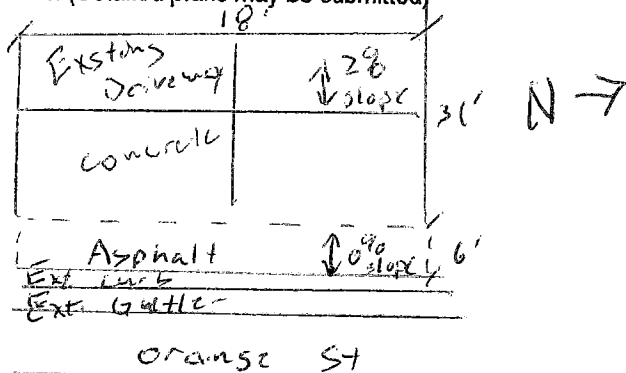 (Detailed plans may be submitted)
18'
Existing
Driveway
2%
slope
31'
N
Concrete
Asphalt
0%
slope
6'
Ext Curb
Ext. Gutter
Orange St